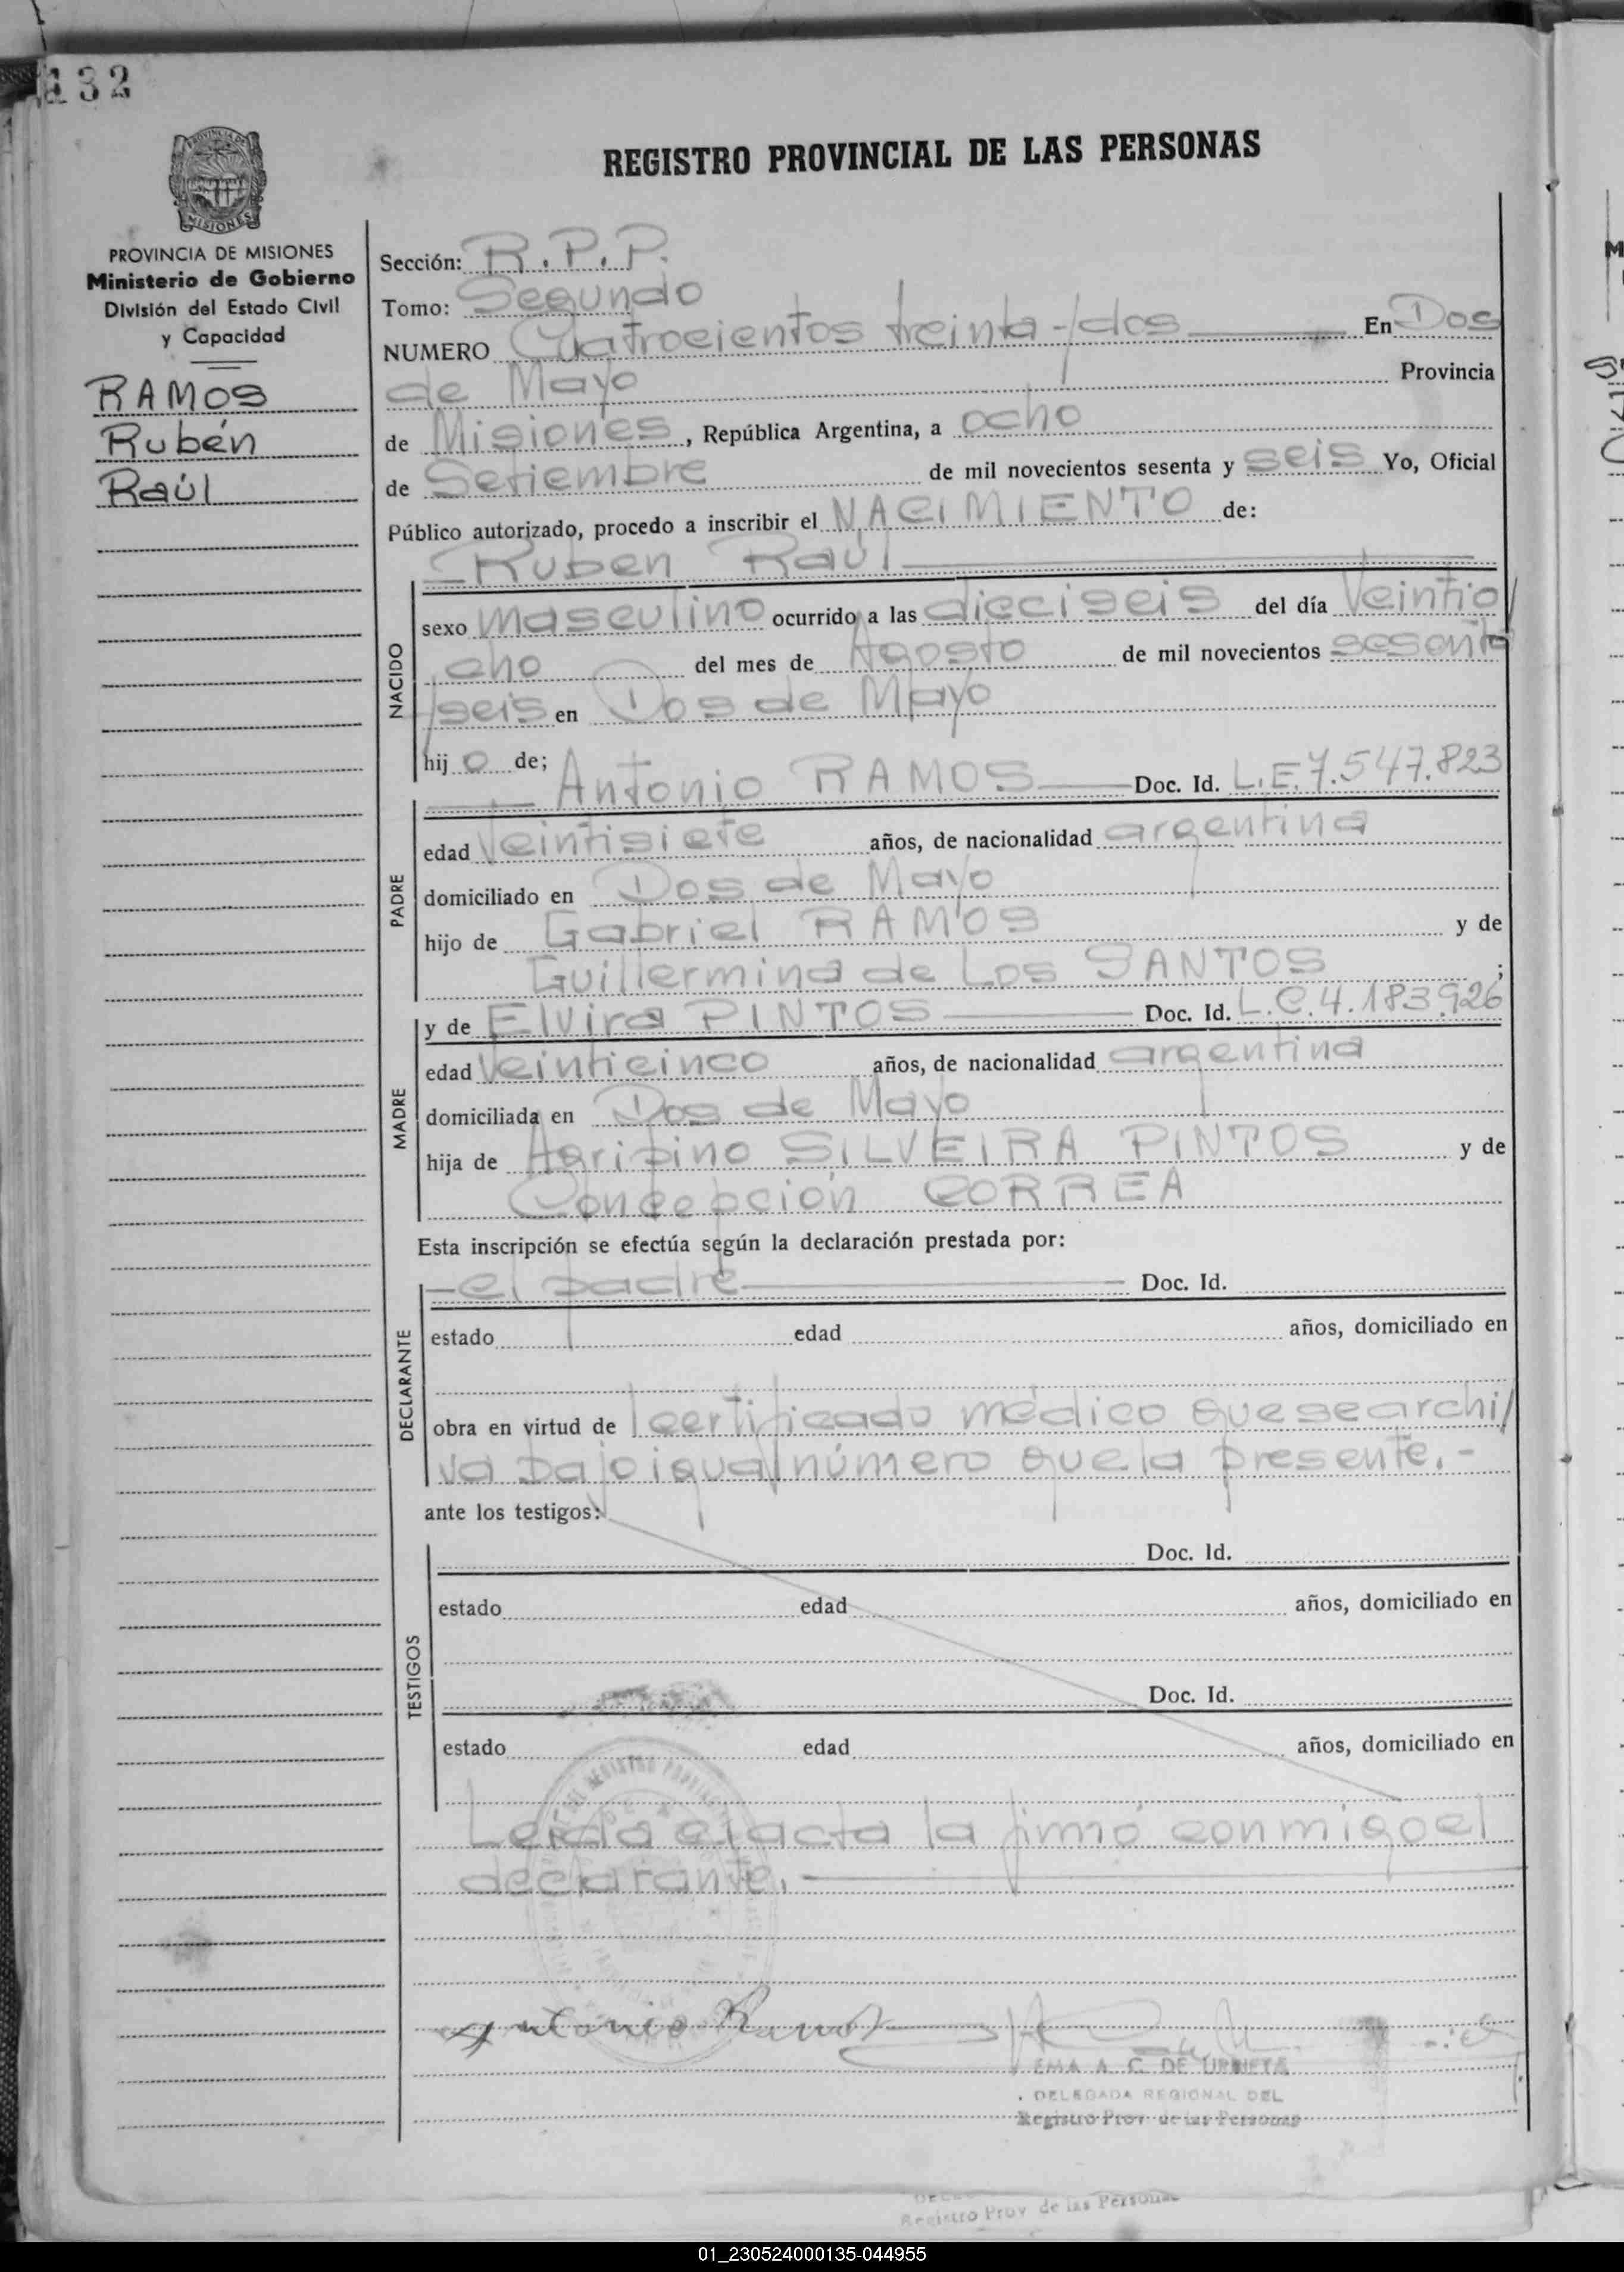 132
REGISTRO PROVINCIAL DE LAS PERSONAS
MISIONES
PROVINCIA DE MISIONES
Ministerio de Gobierno
División del Estado Civil
y Capacidad
RAMOS
Rubén
Raúl
Sección: R.P.P.
Tomo: Segundo
NUMERO Cuatrocientos treinta y dos En Dos
de Mayo Provincia
de Misiones, República Argentina, a ocho
de Setiembre de mil novecientos sesenta y seis Yo, Oficial
Público autorizado, procedo a inscribir el NACIMIENTO de:
Ruben Raúl
NACIDO
sexo masculino ocurrido a las dieciseis del día Veintio/
cho del mes de Agosto de mil novecientos sesenta
y seis en Dos de Mayo
hijo de;
PADRE
Antonio RAMOS Doc. Id. L.E. 7.547.823
edad Veintisiete años, de nacionalidad argentina
domiciliado en Dos de Mayo
hijo de Gabriel RAMOS y de
Guillermina de Los SANTOS ;
MADRE
y de Elvira PINTOS Doc. Id. L.C. 4.183.926
edad Veinticinco años, de nacionalidad argentina
domiciliada en Dos de Mayo
hija de Agripino SILVEIRA PINTOS y de
Concepción CORREA
Esta inscripción se efectúa según la declaración prestada por:
DECLARANTE
el padre Doc. Id.
estado edad años, domiciliado en
obra en virtud de certificado médico que se archi/
va bajo igual número que la presente.-
ante los testigos:
TESTIGOS
Doc. Id.
estado edad años, domiciliado en
Doc. Id.
estado edad años, domiciliado en
Leída el acta la firmó conmigo el
declarante.
Antonio Ramos
EMA A. C. DE URRUETA
DELEGADA REGIONAL DEL
Registro Prov. de las Personas
Registro Prov de las Persona
01_230524000135-044955